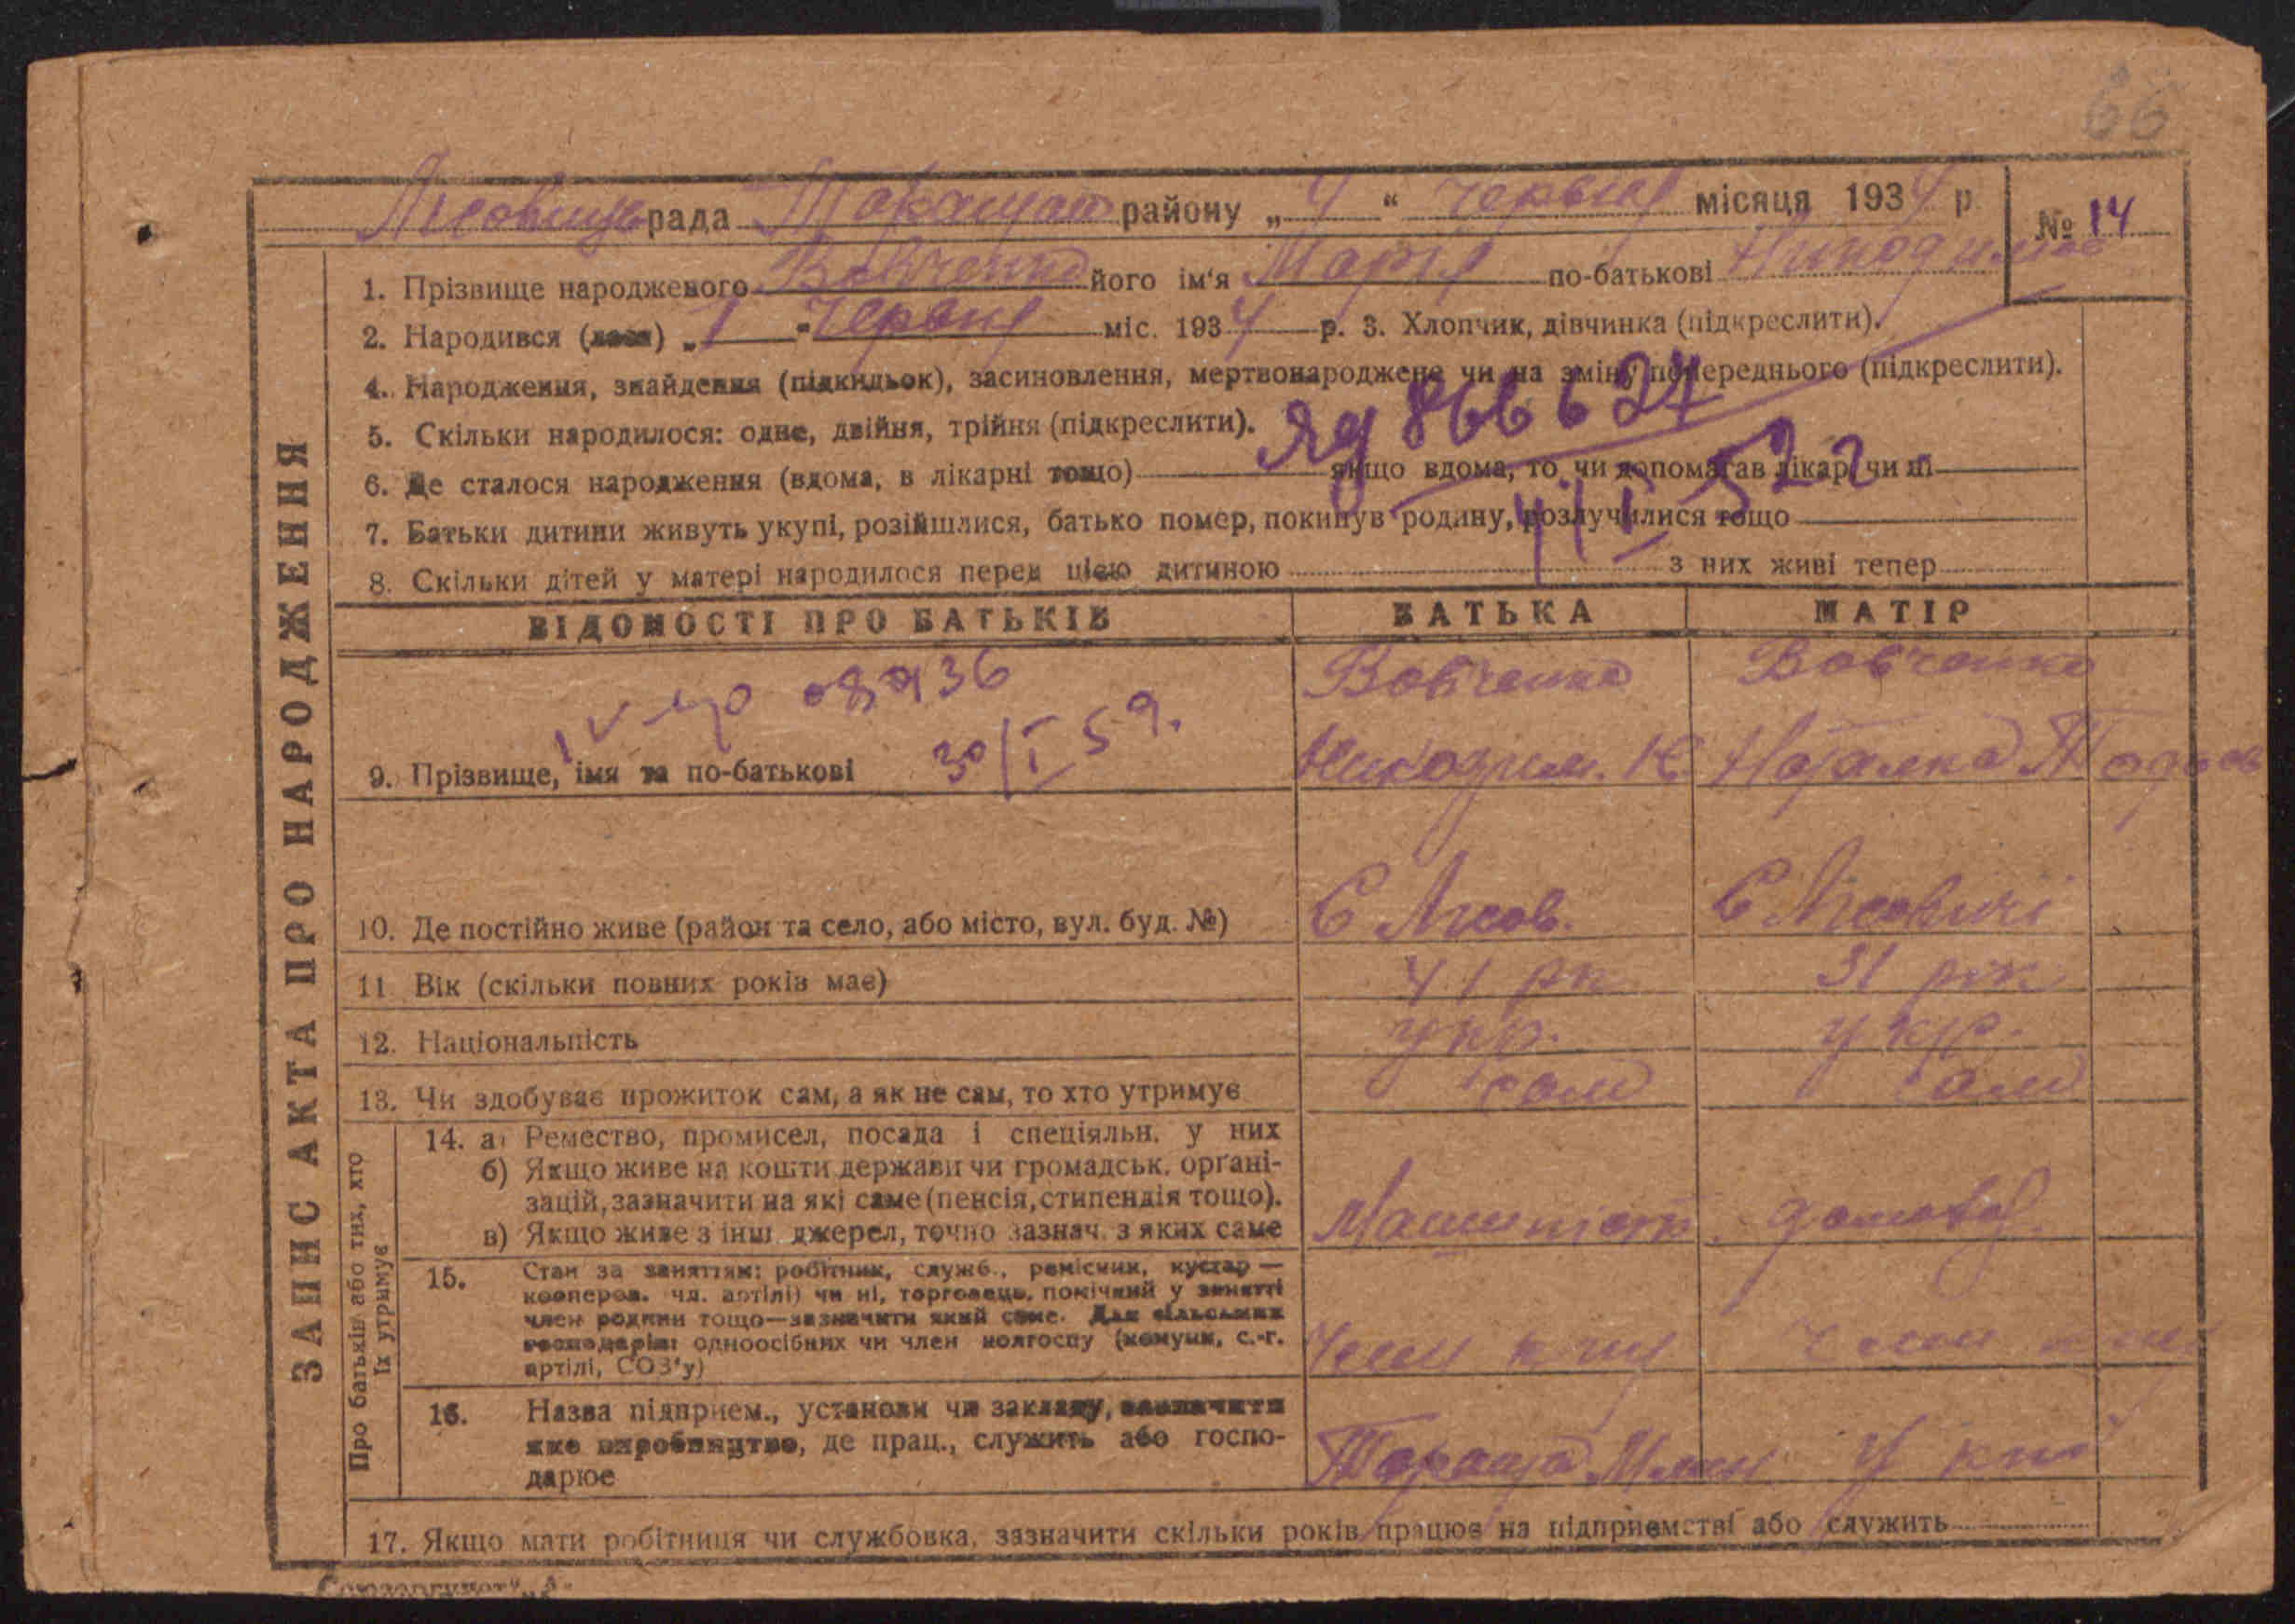 66
Лісовицьк рада Таращан району „4“ червня місяця 1934 р. № 14
ЗАПИС АКТА ПРО НАРОДЖЕННЯ
1. Прізвище народженого Вовченко його ім'я Марія по-батькові Никодимов
2. Народився (лася) „1“ червня міс. 1934 р. 3. Хлопчик, дівчинка (підкреслити).
4. Народження, знайдення (підкидьок), засиновлення, мертвонароджене чи на зміну попереднього (підкреслити).
5. Скільки народилося: одне, двійня, трійня (підкреслити).
6. Де сталося народження (вдома, в лікарні тощо) якщо вдома, то чи допомагав лікар чи ні
7. Батьки дитини живуть укупі, розійшлися, батько помер, покинув родину, розлучилися тощо
8. Скільки дітей у матері народилося перед цією дитиною з них живі тепер
ВІДОМОСТІ ПРО БАТЬКІВ БАТЬКА МАТІР
Вовченко Вовченко
30/I 59.
9. Прізвище, імя та по-батькові Никодим. К Наталка
10. Де постійно живе (район та село, або місто, вул. буд. №) С Лісов. С Лісовичі
11. Вік (скільки повних років має) 41 рк 31 рік
12. Національність укр. укр.
13. Чи здобуває прожиток сам, а як не сам, то хто утримує сам сам
Про батьків або тих, хто
їх утримує
14. а) Ремество, промисел, посада і спеціяльн. у них
б) Якщо живе на кошти держави чи громадськ. орґані-
зацій, зазначити на які саме (пенсія, стипендія тощо).
в) Якщо живе з інш. джерел, точно зазнач. з яких саме Машиніст.
15. Стан за заняттям: робітник, служб., ремісник, кустар —
кооперов. чл. артілі) чи ні, торговець, помічний у занятті
член родини тощо—зазначити який саме. Для сільських
господарів: одноосібних чи член колгоспу (комуни, с.-г.
артілі, СОЗ'у) Член Член
16. Назва підприєм., установи чи закладу, зазначити
яке виробництво, де прац., служить або госпо-
дарює Тараща Млин У
17. Якщо мати робітниця чи службовка, зазначити скільки років працює на підприємстві або служить